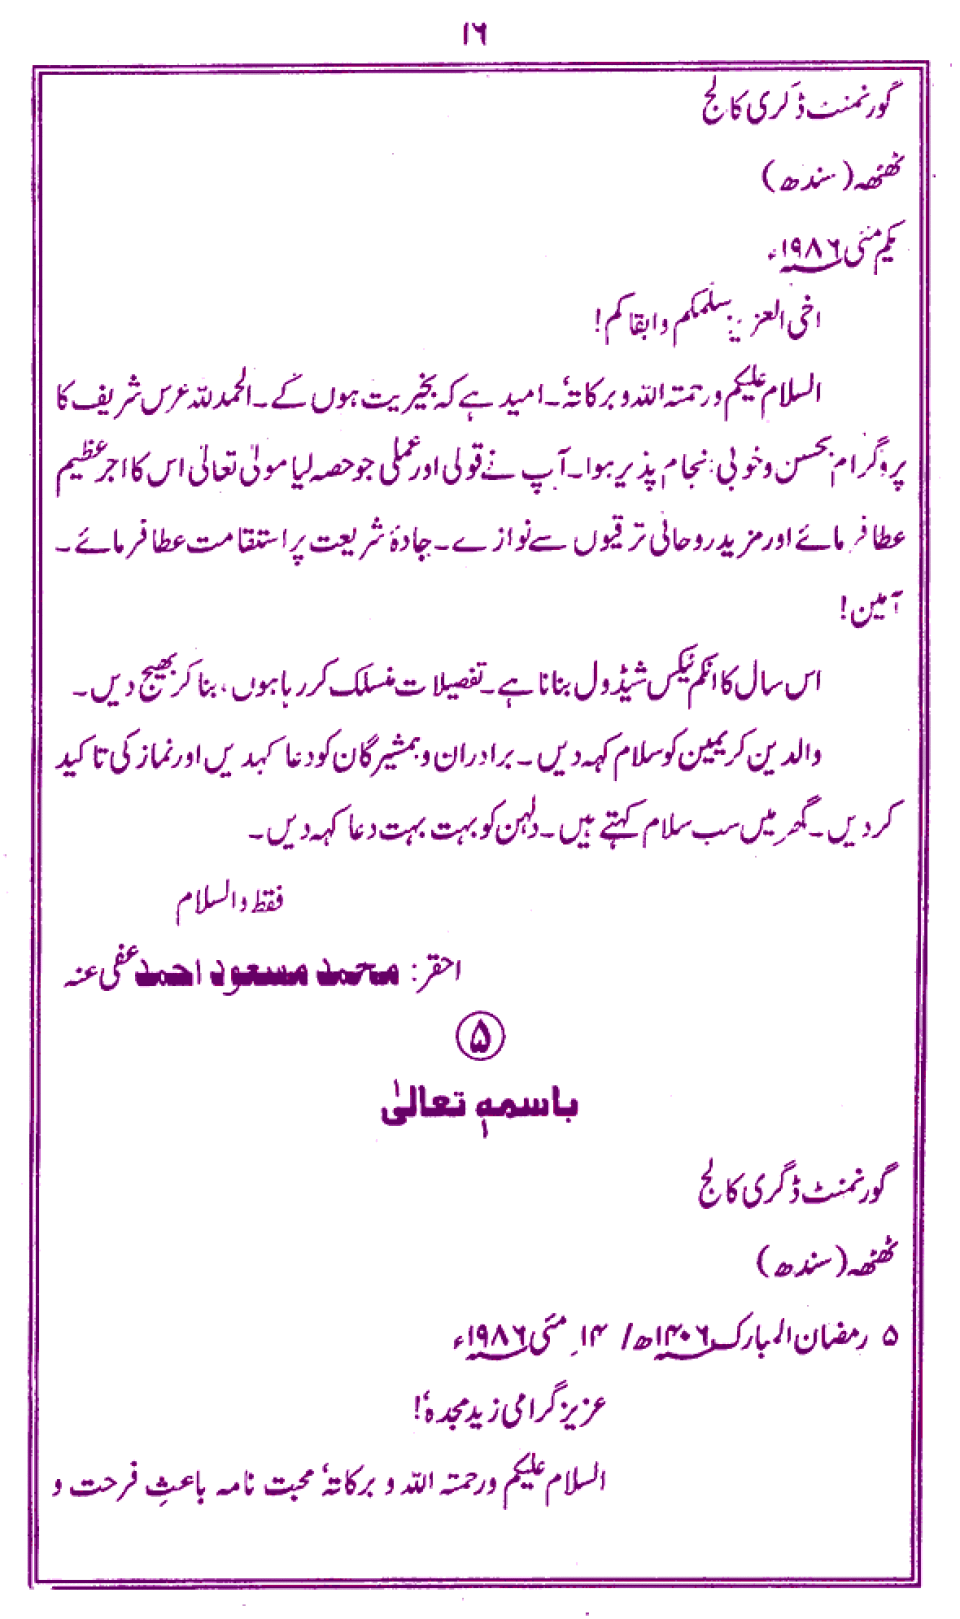 ۱۶
گورنمنٹ ڈگری کالج
ٹھٹھہ (سندھ)
یکم مئی ۱۹۸۶ء
اخی العزیز سلمکم وابقاکم!
السلام علیکم ورحمتہ اللہ وبرکاتہٗ۔ امید ہے کہ بخیریت ہوں گے۔ الحمدللہ عرس شریف کا
پروگرام بحسن وخوبی انجام پذیر ہوا۔ آپ نے قولی اور عملی جو حصہ لیا مولیٰ تعالیٰ اس کا اجر عظیم
عطا فرمائے اور مزید روحانی ترقیوں سے نوازے۔ جادۂ شریعت پر استقامت عطا فرمائے۔
آمین!
اس سال کا انکم ٹیکس شیڈول بنانا ہے۔ تفصیلات منسلک کر رہا ہوں، بنا کر بھیج دیں۔
والدین کریمین کو سلام کہہ دیں۔ برادران وہمشیرگان کو دعا کہدیں اور نماز کی تاکید
کردیں۔ گھر میں سب سلام کہتے ہیں۔ دلہن کو بہت بہت دعا کہہ دیں۔
فقط والسلام
احقر: محمد مسعود احمد عفی عنہ
۵
باسمہٖ تعالیٰ
گورنمنٹ ڈگری کالج
ٹھٹھہ (سندھ)
۵ رمضان المبارک ۱۴۰۶ھ/ ۱۴؍ مئی ۱۹۸۶ء
عزیز گرامی زید مجدہٗ!
السلام علیکم ورحمتہ اللہ و برکاتہٗ محبت نامہ باعثِ فرحت و